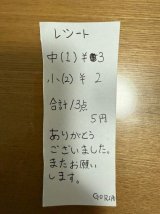 レシート
中(1) ¥3
小(2) ¥ 2
合計13点
5円
ありがとう
ございました。
またお願い
します。